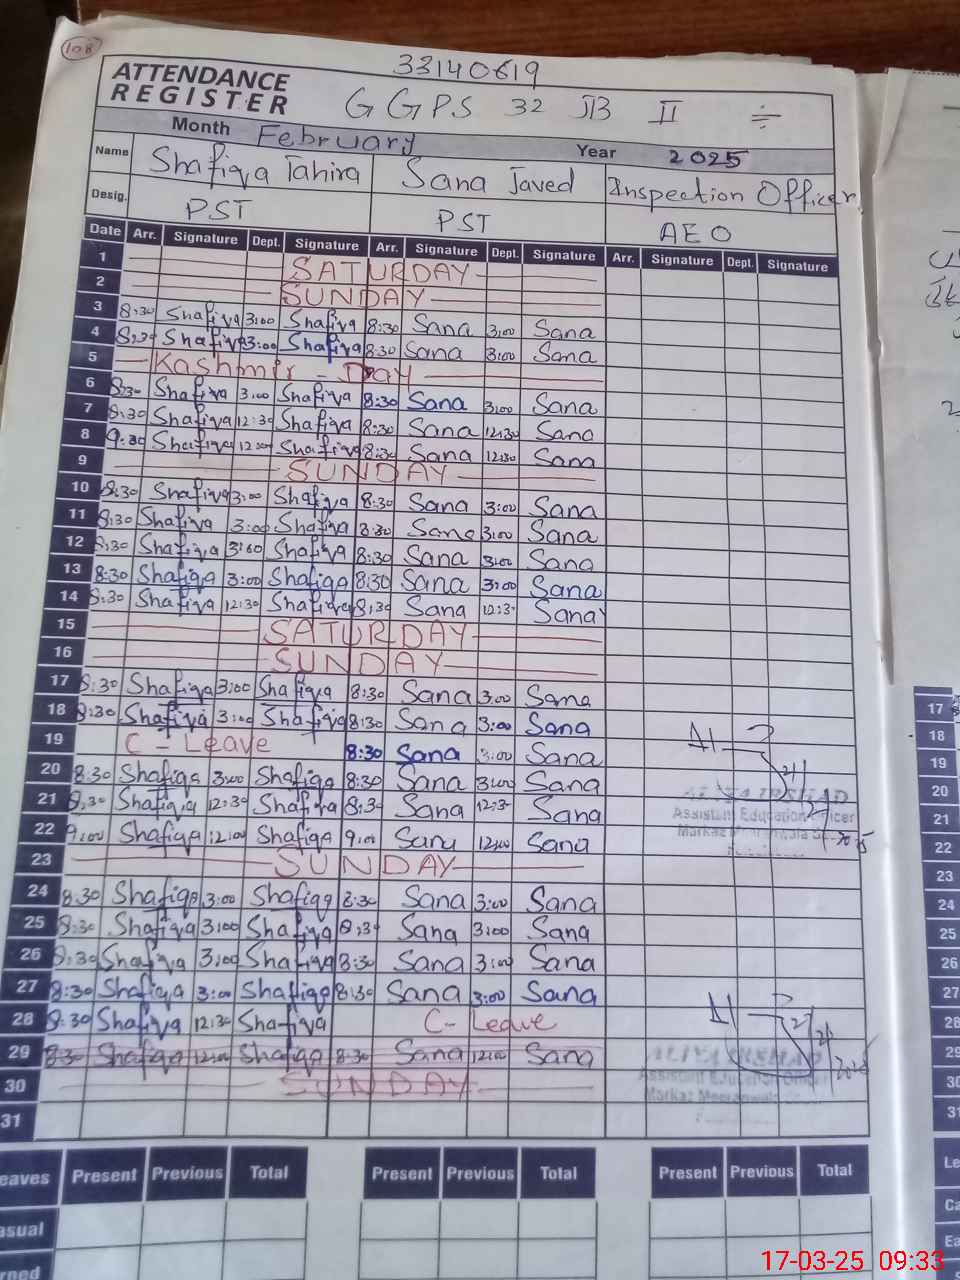 108
33140619
ATTENDANCE REGISTER GGPS 32 JB II
Month February Year 2025
Name Shafiqa Tahira Sana Javed Inspection Officer
Desig. PST PST AEO
Date Arr. Signature Dept. Signature Arr. Signature Dept. Signature Arr. Signature Dept. Signature
1 SATURDAY
2 SUNDAY
3 8:30 Shafiqa 3:00 Shafiqa 8:30 Sana 3:00 Sana
4 8:30 Shafiqa 3:00 Shafiqa 8:30 Sana 3:00 Sana
5 Kashmir - Day
6 8:30 Shafiqa 3:00 Shafiqa 8:30 Sana 3:00 Sana
7 8:30 Shafiqa 12:30 Shafiqa 8:30 Sana 12:30 Sana
8 9:30 Shafiqa Shafiqa 8:30 Sana 12:30 Sana
9 SUNDAY
10 8:30 Shafiqa 3:00 Shafiqa 8:30 Sana 3:00 Sana
11 8:30 Shafiqa 3:00 Shafiqa 8:30 Sana 3:00 Sana
12 8:30 Shafiqa 3:00 Shafiqa 8:30 Sana 3:00 Sana
13 8:30 Shafiqa 3:00 Shafiqa 8:30 Sana 3:00 Sana
14 8:30 Shafiqa 12:30 Shafiqa 8:30 Sana 12:3 Sana
15 SATURDAY
16 SUNDAY
17 8:30 Shafiqa 3:00 Shafiqa 8:30 Sana 3:00 Sana
18 8:30 Shafiqa 3:00 Shafiqa 8:30 Sana 3:00 Sana
19 C - Leave 8:30 Sana 3:00 Sana
20 8:30 Shafiqa 3:00 Shafiqa 8:30 Sana 3:00 Sana
21 8:30 Shafiqa 12:30 Shafiqa 8:30 Sana 12:3 Sana
Assistant Education Officer
22 9:00 Shafiqa 12:00 Shafiqa 9:00 Sana 12:00 Sana
23 SUNDAY
24 8:30 Shafiqa 3:00 Shafiqa 8:30 Sana 3:00 Sana
25 8:30 Shafiqa 3:00 Shafiqa 8:30 Sana 3:00 Sana
26 8:30 Shafiqa 3:00 Shafiqa 8:30 Sana 3:00 Sana
27 8:30 Shafiqa 3:00 Shafiqa 8:30 Sana 3:00 Sana
28 8:30 Shafiqa 12:30 Shafiqa C- Leave
29 8:30 Shafiqa 12:00 Shafiqa 8:30 Sana 12:00 Sana
Assistant Education Officer
30 SUNDAY
31
eaves Present Previous Total Present Previous Total Present Previous Total
asual
rned
17
18
19
20
21
22
23
24
25
26
27
28
29
30
31
Le
Ca
Ea
17-03-25 09:33